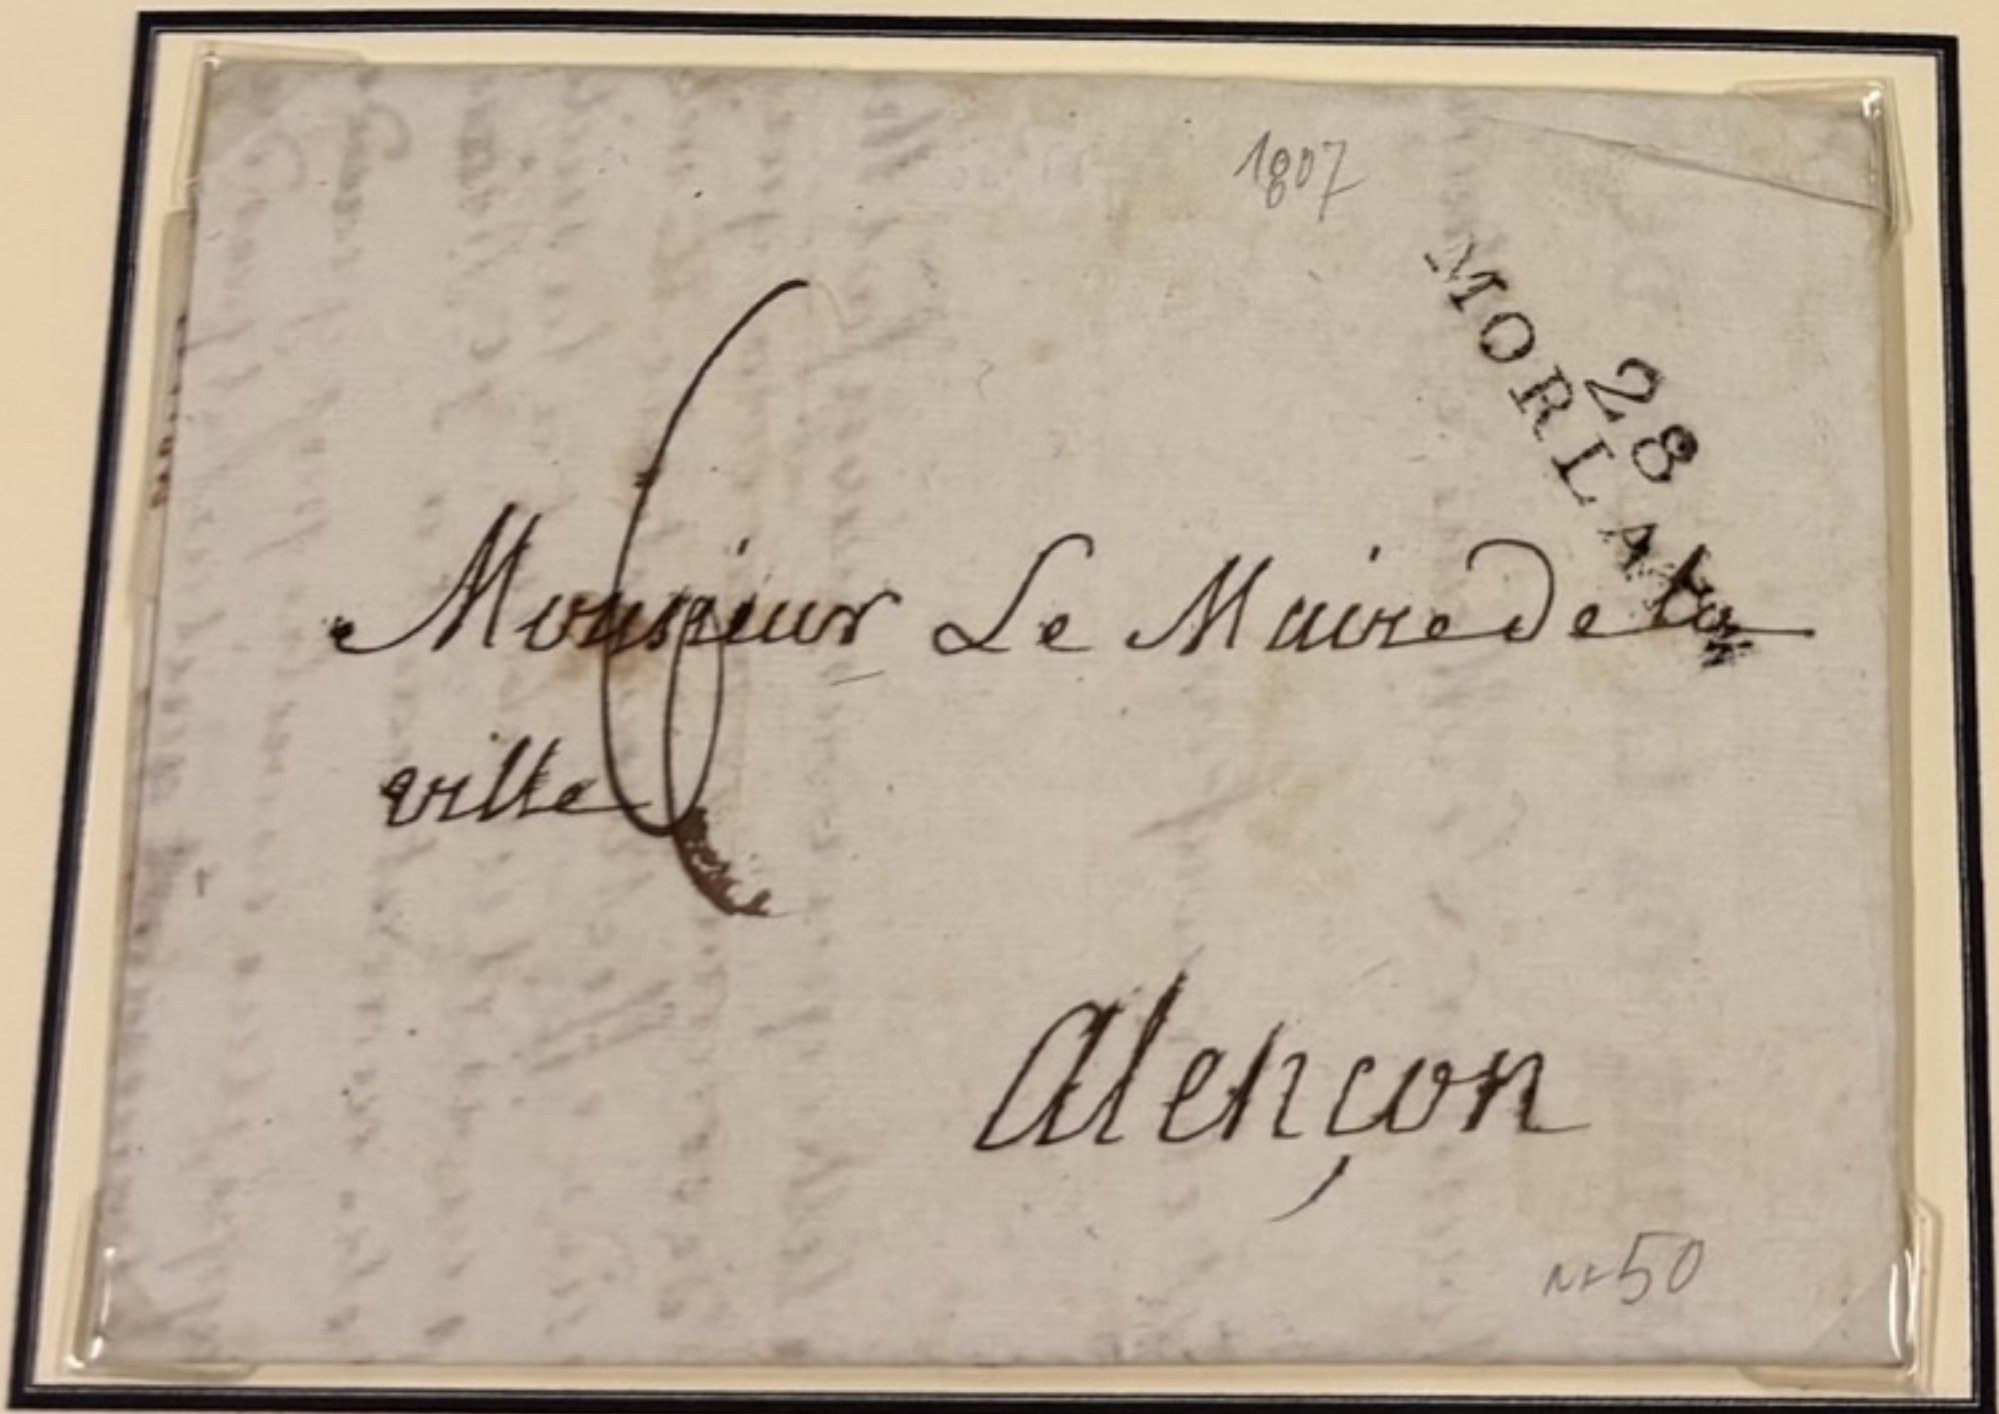 1807
28
MORLAIX
Monsieur Le Maire de la
ville
6
alençon
nr 50